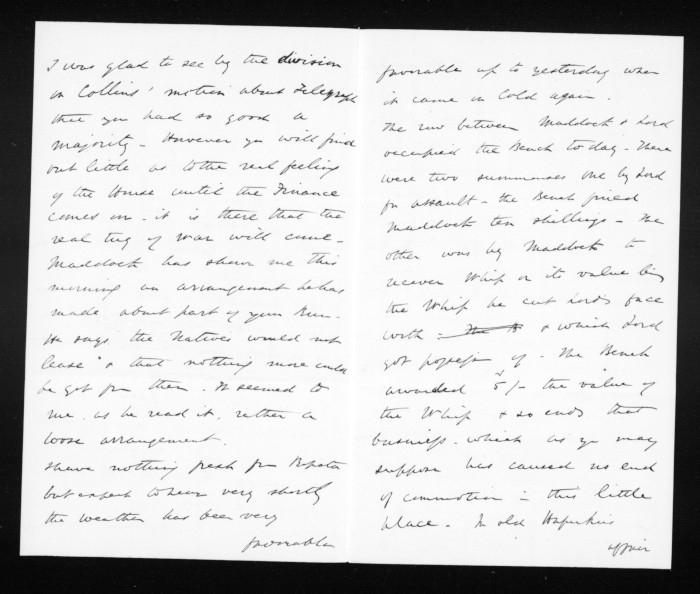 I was glad to see by the division
on Collins' motion about Telegraph
that you had so good a
majority - However you will find
out little as to the real feeling
of the House until the Finance
comes on - it is there that the
real tug of war will come -
Maddock has shewn me this
morning an arrangement he has
made about part of your Run -
He says the Natives would not
lease & that nothing more could
be got from them. It seemed to
me, as he read it, rather a
loose arrangement.
I have nothing fresh from
but expect to hear very shortly
the weather has been very
favorable
favorable up to yesterday when
it came in Cold again.
The row between Maddock & Lord
occupied the Bench to day - There
were two summonses one by Lord
for assault - the Bench fined
Maddock ten shillings - The
other was by Maddock to
recover Whip or its value being
the Whip he cut Lords face
with - & which Lord
got possession of - The Bench
awarded 5/- the value of
the Whip & so ends that
business - which as you may
suppose has caused no end
of commotion in this little
place - In old
affair